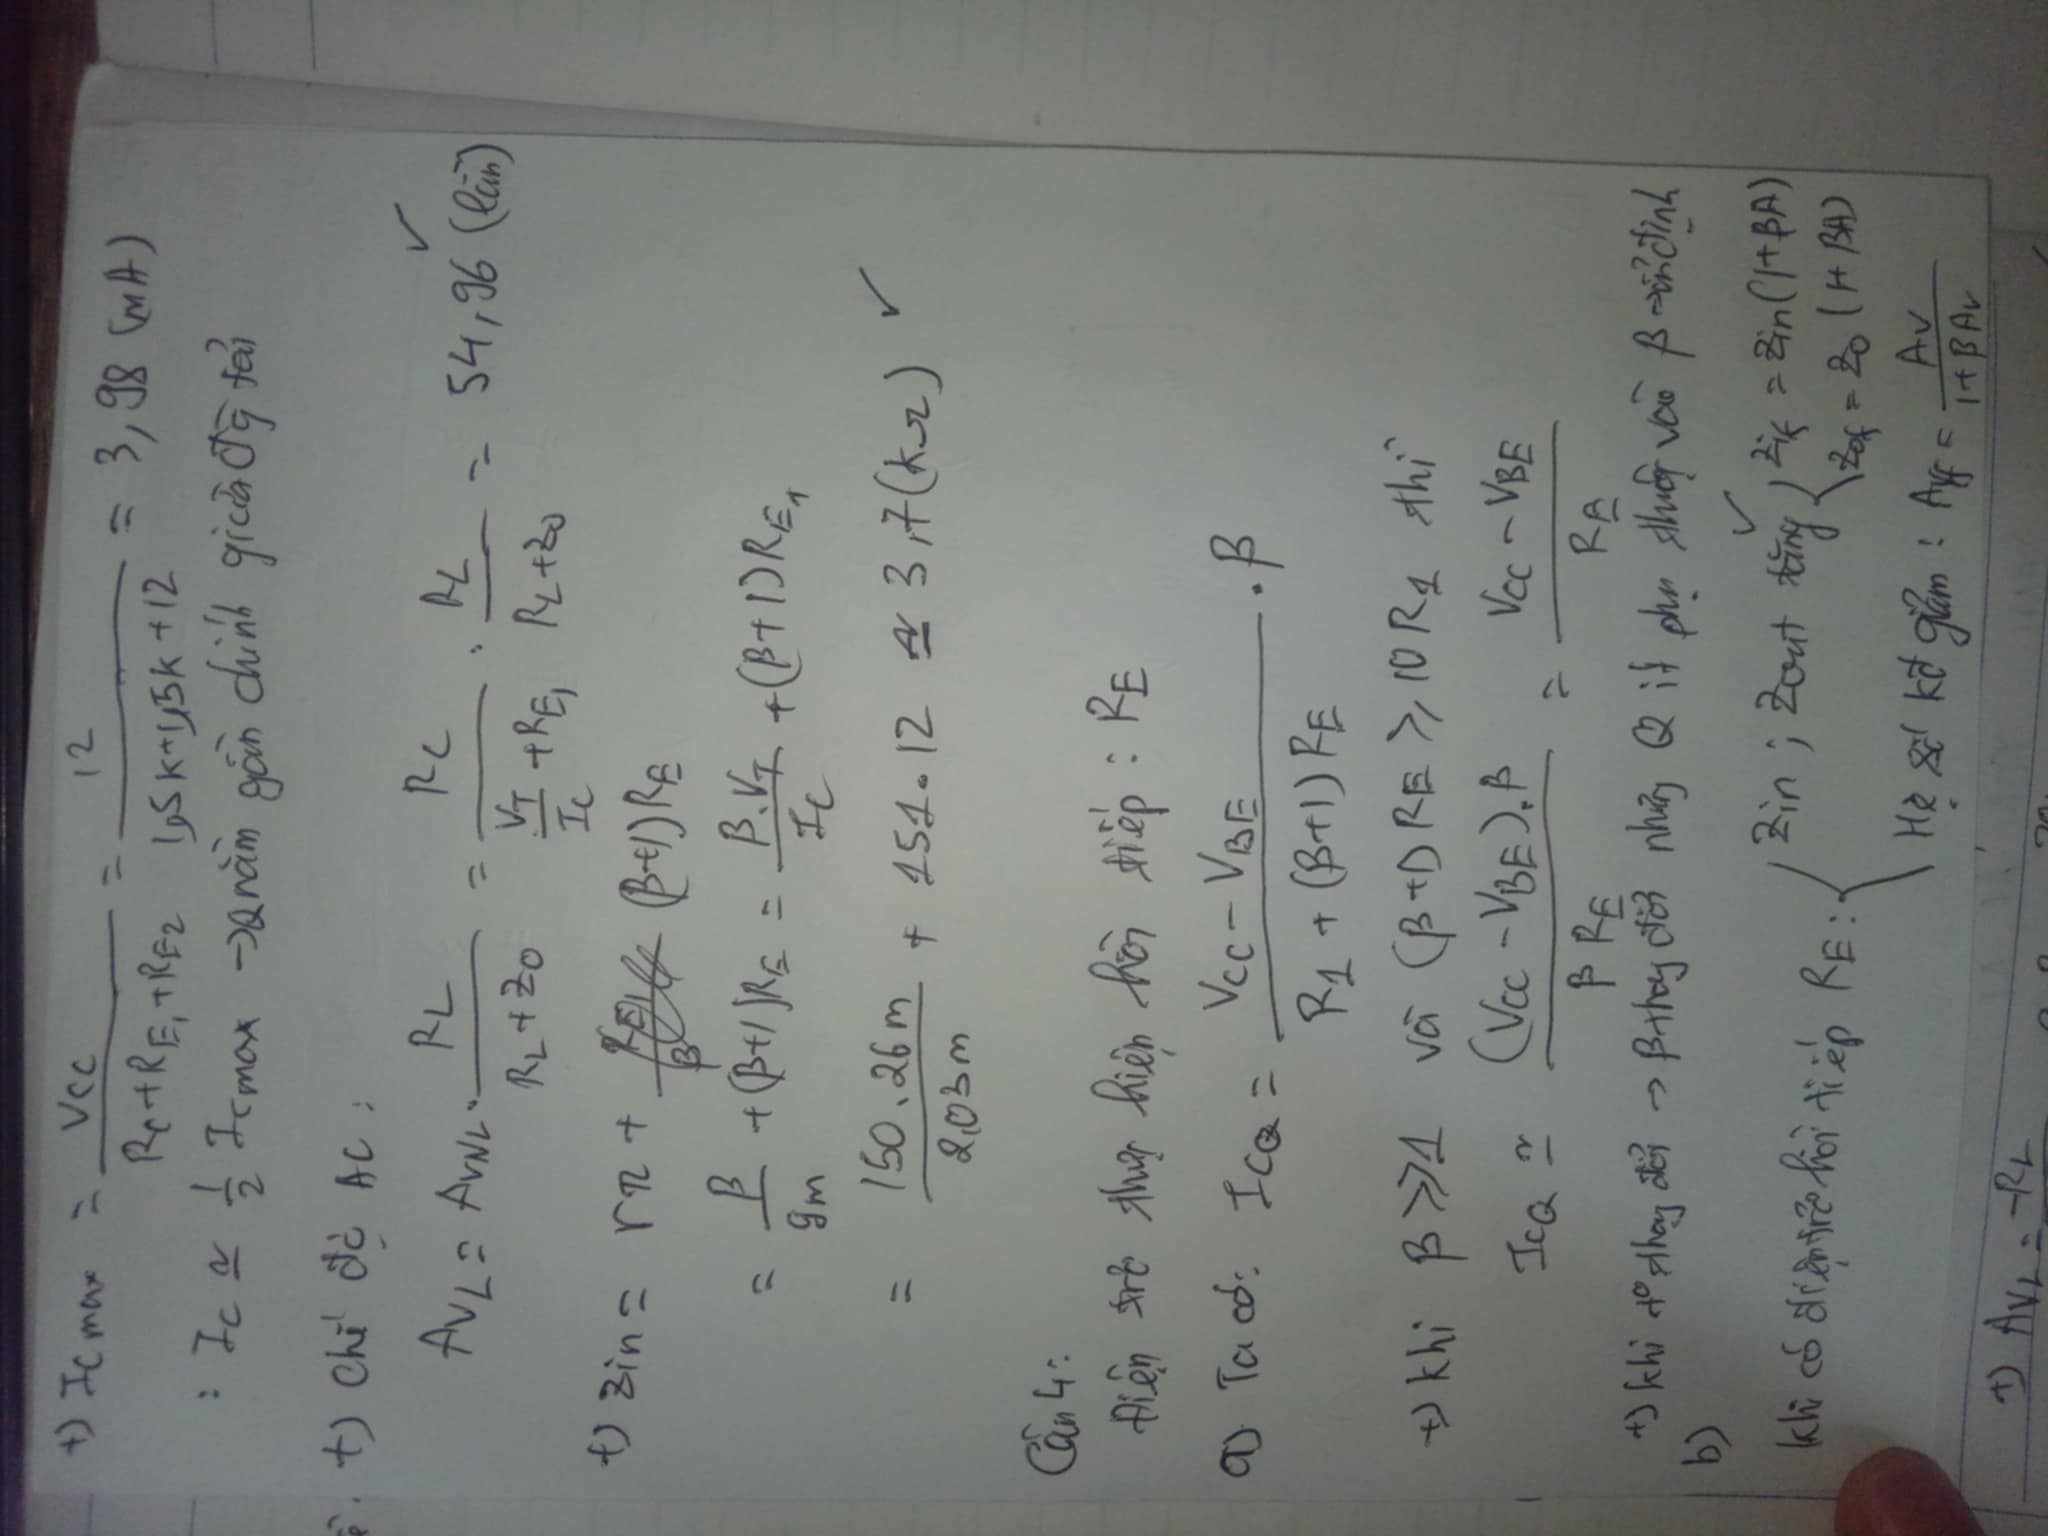 +) Ic max = VCC / (RC + RE1 + RE2) = 12 / (1,5k + 1,5k + 12) = 3,98 (mA)
: Ic ≃ 1/2 Icmax → Q nằm gần chính giữa đg tải
+) Chế độ AC:
AVL = AVNL . RL / (RL + Zo) = RC / (VT/IC + RE1) . RL / (RL + Zo) = 54,96 (lần) ✓
+) Zin = rπ + (β+1)RE
= β/gm + (β+1)RE = β.VT/IC + (β+1)RE1
= 150.26m / 2,03m + 151.12 ≃ 3,7 (kΩ) ✓
Câu 4:
Điện trở thực hiện hồi tiếp : RE
a) Ta có: ICQ = (VCC - VBE) / (R1 + (β+1)RE) . β
+) khi β >> 1 và (β+1)RE ⩾ 10R1 thì
ICQ ≃ (VCC - VBE).β / (β RE) = (VCC - VBE) / RE
+) khi t° thay đổi → β thay đổi nhưng Q ít phụ thuộc vào β → ổn định
b)
khi có điện trở hồi tiếp RE : { Zin ; Zout tăng ✓ { Zif = Zin(1+βA)
Zof = Zo (1+ βA)
Hệ số kđ giảm : Avf = Av / (1+βAv)
+) AVL = -RL